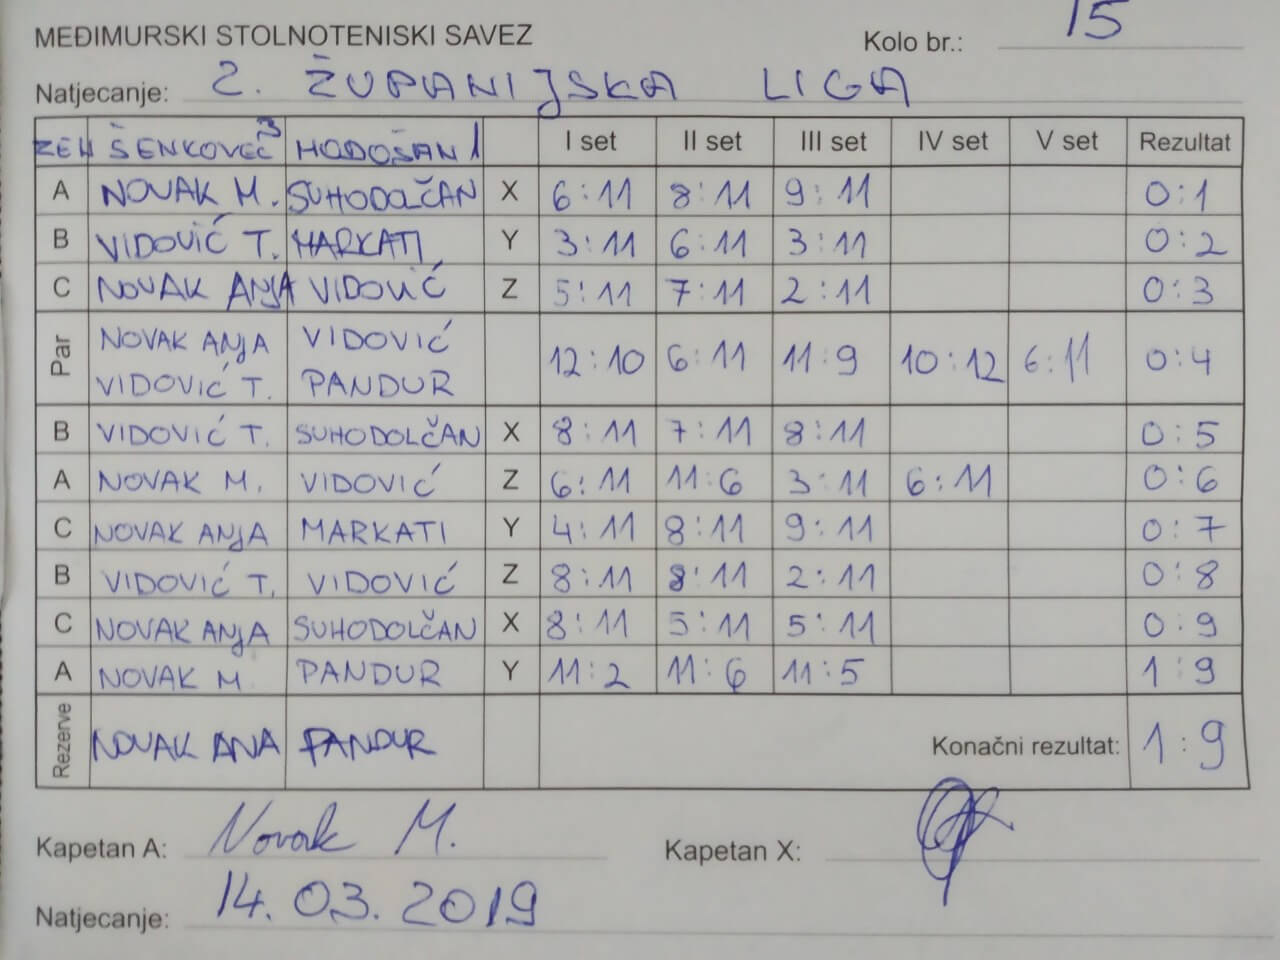 MEĐIMURSKI STOLNOTENISKI SAVEZ
Kolo br.: 15
Natjecanje: 2. ŽUPANIJSKA LIGA
ZEN ŠENKOVEC 3 HODOŠAN 1 I set II set III set IV set V set Rezultat
A NOVAK M. SUHODOLČAN X 6:11 8:11 9:11 0:1
B VIDOVIĆ T. MARKATI Y 3:11 6:11 3:11 0:2
C NOVAK ANJA VIDOVIĆ Z 5:11 7:11 2:11 0:3
Par NOVAK ANJA VIDOVIĆ 12:10 6:11 11:9 10:12 6:11 0:4
VIDOVIĆ T. PANDUR
B VIDOVIĆ T. SUHODOLČAN X 8:11 7:11 8:11 0:5
A NOVAK M. VIDOVIĆ Z 6:11 11:6 3:11 6:11 0:6
C NOVAK ANJA MARKATI Y 4:11 8:11 9:11 0:7
B VIDOVIĆ T. VIDOVIĆ Z 8:11 8:11 2:11 0:8
C NOVAK ANJA SUHODOLČAN X 8:11 5:11 5:11 0:9
A NOVAK M PANDUR Y 11:2 11:6 11:5 1:9
Rezerve NOVAK ANA PANDUR Konačni rezultat: 1:9
Kapetan A: Novak M. Kapetan X:
Natjecanje: 14.03.2019